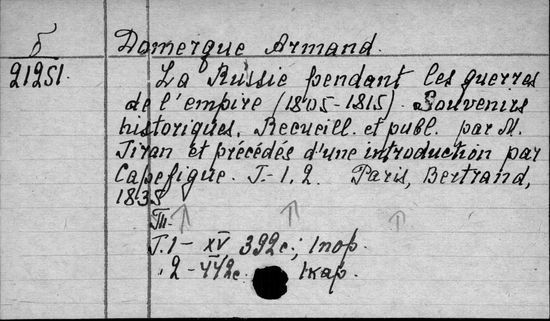 б Domergue Armand.
21251. La Russie pendant les guerres
de l'empire (1805-1815). Souvenirs
historiques. Recueill. et publ. par M.
Tiran et précédés d'une introduction par
Capefigue. T.-1,2. Paris, Bertrand,
1835
T.1 - XV 392с.; 1пор.
" 2 - 442с. 1кар.